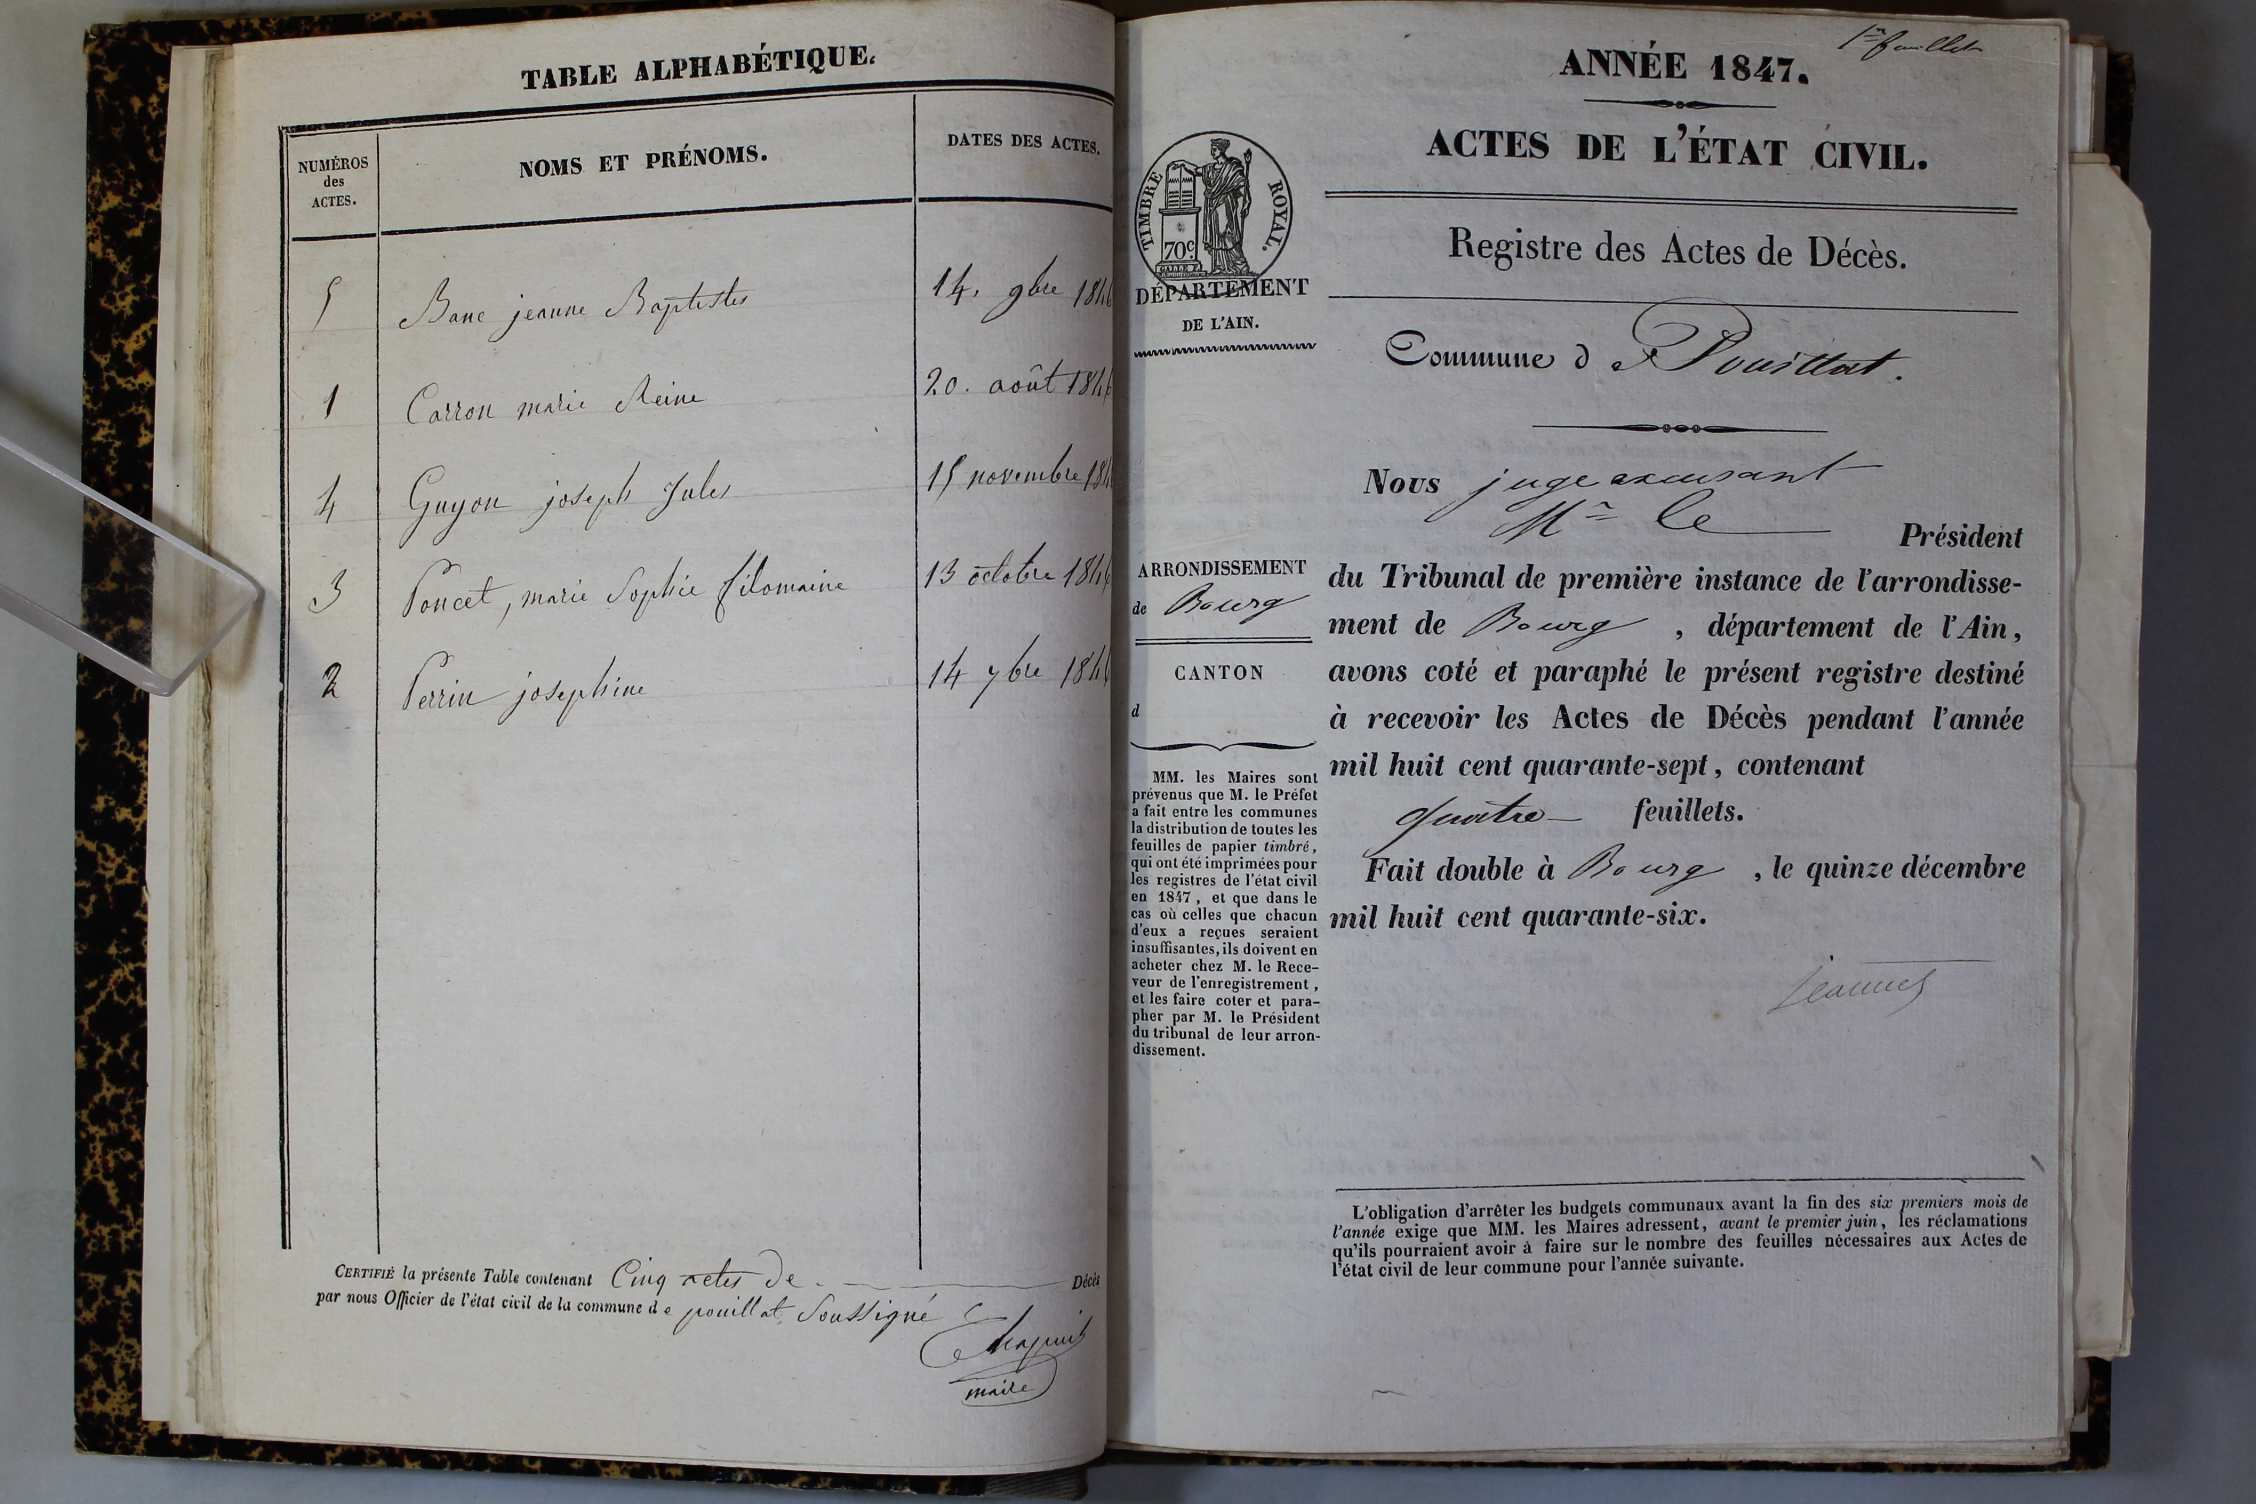 TABLE ALPHABÉTIQUE.
NUMÉROS
des
ACTES.
NOMS ET PRÉNOMS.
DATES DES ACTES.
5 Bane jeanne Baptiste 14. 9bre 1846
1 Carron marie Reine 20. août 1846
4 Guyon joseph Jules 15 novembre 184
3 Poncet, marie Sophie filomaine 13 octobre 1846
2 Perrin josephine 14 7bre 1846
CERTIFIÉ la présente Table contenant Cinq actes de Décès
par nous Officier de l'état civil de la commune de pouillat, Soussigné
Chapuis
maire
1er feuillet
ANNÉE 1847.
ACTES DE L'ÉTAT CIVIL.
TIMBRE ROYAL.
70c
DÉPARTEMENT
DE L'AIN.
Registre des Actes de Décès.
Commune de Pouillat.
Nous juge excusant
Mr le Président
ARRONDISSEMENT
de Bourg
CANTON
d
MM. les Maires sont
prévenus que M. le Préfet
a fait entre les communes
la distribution de toutes les
feuilles de papier timbré,
qui ont été imprimées pour
les registres de l'état civil
en 1847, et que dans le
cas où celles que chacun
d'eux a reçues seraient
insuffisantes, ils doivent en
acheter chez M. le Rece-
veur de l'enregistrement,
et les faire coter et para-
pher par M. le Président
du tribunal de leur arron-
dissement.
du Tribunal de première instance de l'arrondisse-
ment de Bourg, département de l'Ain,
avons coté et paraphé le présent registre destiné
à recevoir les Actes de Décès pendant l'année
mil huit cent quarante-sept, contenant
quatre feuillets.
Fait double à Bourg, le quinze décembre
mil huit cent quarante-six.
L'obligation d'arrêter les budgets communaux avant la fin des six premiers mois de
l'année exige que MM. les Maires adressent, avant le premier juin, les réclamations
qu'ils pourraient avoir à faire sur le nombre des feuilles nécessaires aux Actes de
l'état civil de leur commune pour l'année suivante.